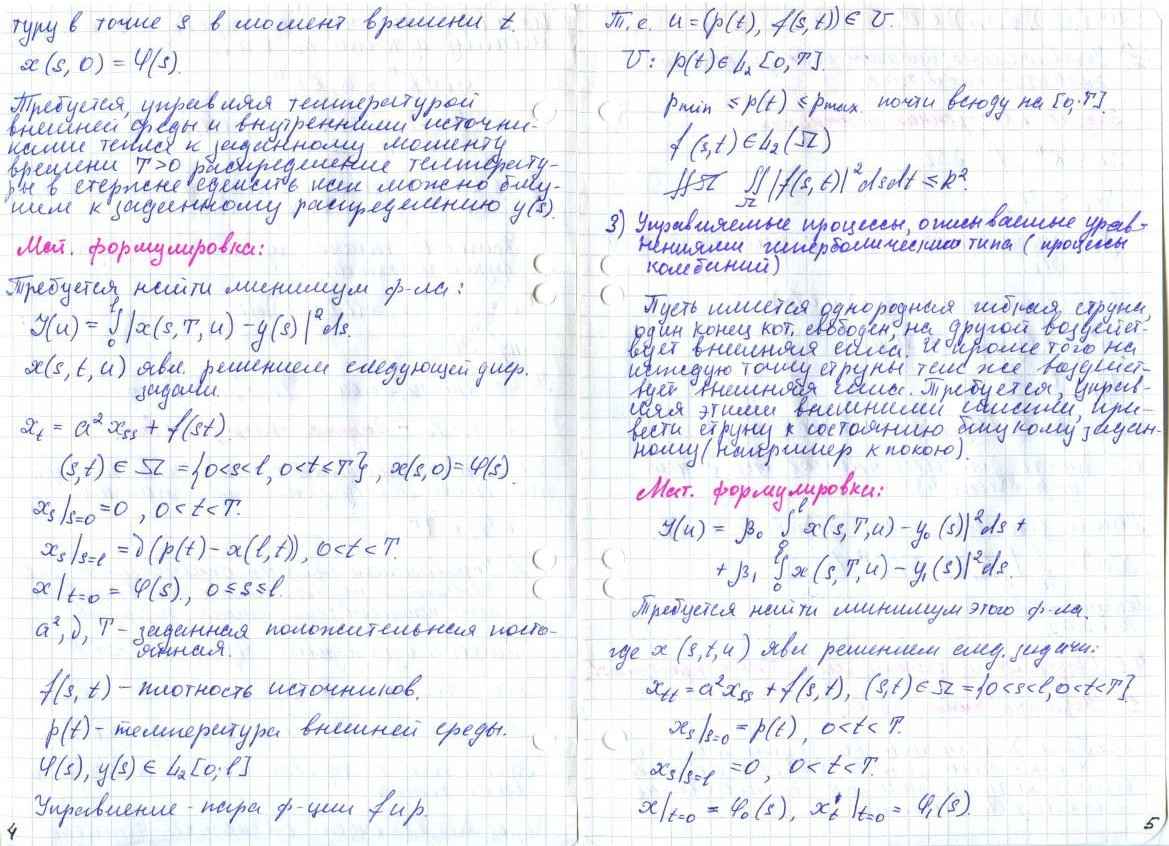 туру в точке s в момент времени t.
x(s, 0) = φ(s).
Требуется, управляя температурой
внешней среды и внутренними источни-
ками тепла к заданному моменту
времени T>0 распределение температу-
ры в стержне сделать как можно бли-
ним к заданному распределению y(s).
Мат. формулировка:
Требуется найти минимум ф-ла:
J(u) = ∫₀ˡ |x(s,T,u) – y(s)|² ds.
x(s,t,u) явл. решением следующей диф.
задачи.
x_t = a² x_ss + f(s,t)
(s,t) ∈ Ω = {0<s<l, 0<t≤T}, x(s,0)=φ(s).
x_s|_{s=0} = 0, 0<t<T.
x_s|_{s=l} = ∂(p(t) – x(l,t)), 0<t<T.
x|_{t=0} = φ(s), 0≤s≤l.
a², ∂, T – заданная положительная посто-
янная.
f(s,t) – плотность источников.
p(t) – температура внешней среды.
φ(s), y(s) ∈ L₂[0;l]
Управление – пара ф-ции f и p.
4
Т.е. u = (p(t), f(s,t)) ∈ U.
U: p(t) ∈ L₂[0,T].
p_min ≤ p(t) ≤ p_max почти всюду на [0;T]
f(s,t) ∈ L₂(Ω)
∬_Ω |f(s,t)|² ds dt ≤ R².
3) Управляемые процессы, описываемые урав-
нениями гиперболического типа (процессы
колебаний)
Пусть имеется однородная гибкая струна,
один конец кот. свободен, на другой воздейст-
вует внешняя сила. И кроме того на
каждую точку струны так же воздейст-
вует внешняя сила. Требуется, управ-
ляя этими внешними силами, при-
вести струну к состоянию близкому задан-
ному (например к покою).
Мат. формулировка:
J(u) = β₀ ∫₀ˡ x(s,T,u) – y₀(s)|² ds +
+ β₁ ∫₀ˡ x(s,T,u) – y₁(s)|² ds.
Требуется найти минимум этого ф-ла.
где x(s,t,u) явл решением след. задачи:
x_tt = a² x_ss + f(s,t), (s,t) ∈ Ω = {0<s<l, 0<t<T}
x_s|_{s=0} = p(t), 0<t<T.
x_s|_{s=l} = 0, 0<t<T.
x|_{t=0} = φ₀(s), x_t|_{t=0} = φ₁(s).
5